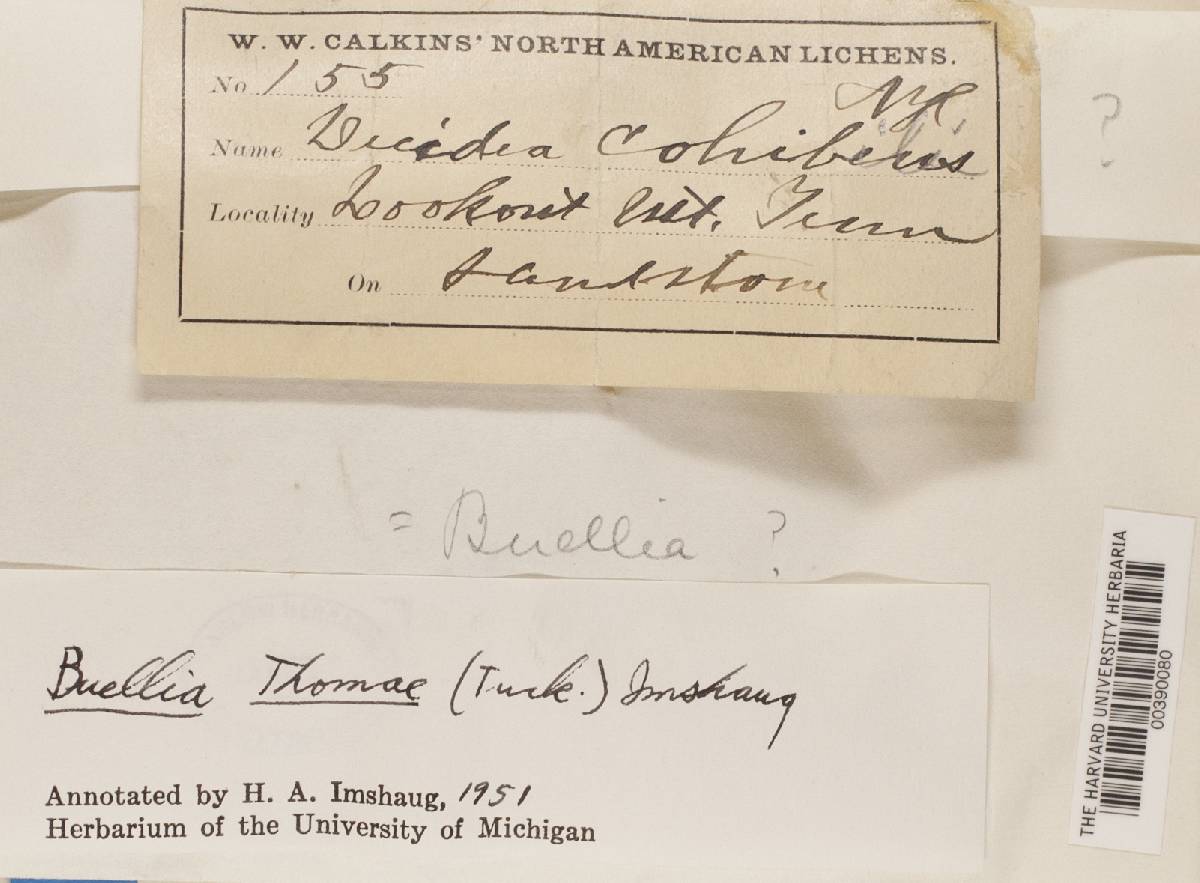 W. W. CALKINS' NORTH AMERICAN LICHENS.
No 155
Nyl.
Name Lecidea cohibens
?
Locality Lookout Mt. Tenn
On Sandstone
= Buellia ?
Buellia Thomae (Tuck.) Imshaug
Annotated by H. A. Imshaug, 1951
Herbarium of the University of Michigan
THE HARVARD UNIVERSITY HERBARIA
00390080